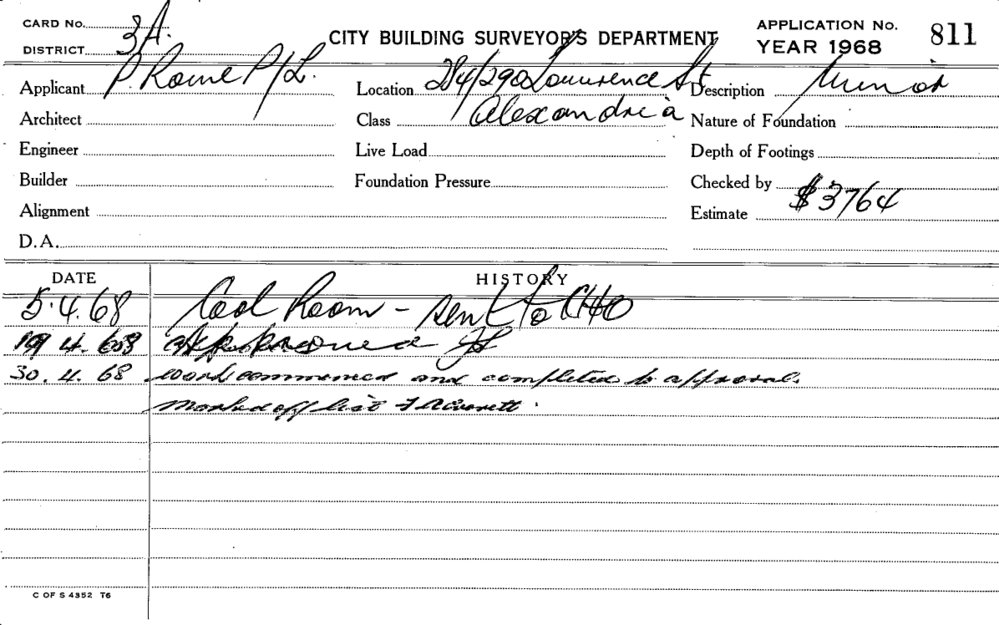 CARD No. APPLICATION No. 811
DISTRICT 3A. CITY BUILDING SURVEYOR'S DEPARTMENT YEAR 1968
Applicant P. Rowe P/L. Location 284/290 Lawrence St Description Minor
Architect Class Alexandria Nature of Foundation
Engineer Live Load Depth of Footings
Builder Foundation Pressure Checked by
Alignment Estimate $3764
D.A.
DATE HISTORY
5.4.68 Cool Room - sent to CHO
19 4. 68 approved
30. 4. 68 work commenced and completed to approval.
Marked off list
C OF S 4352 T6